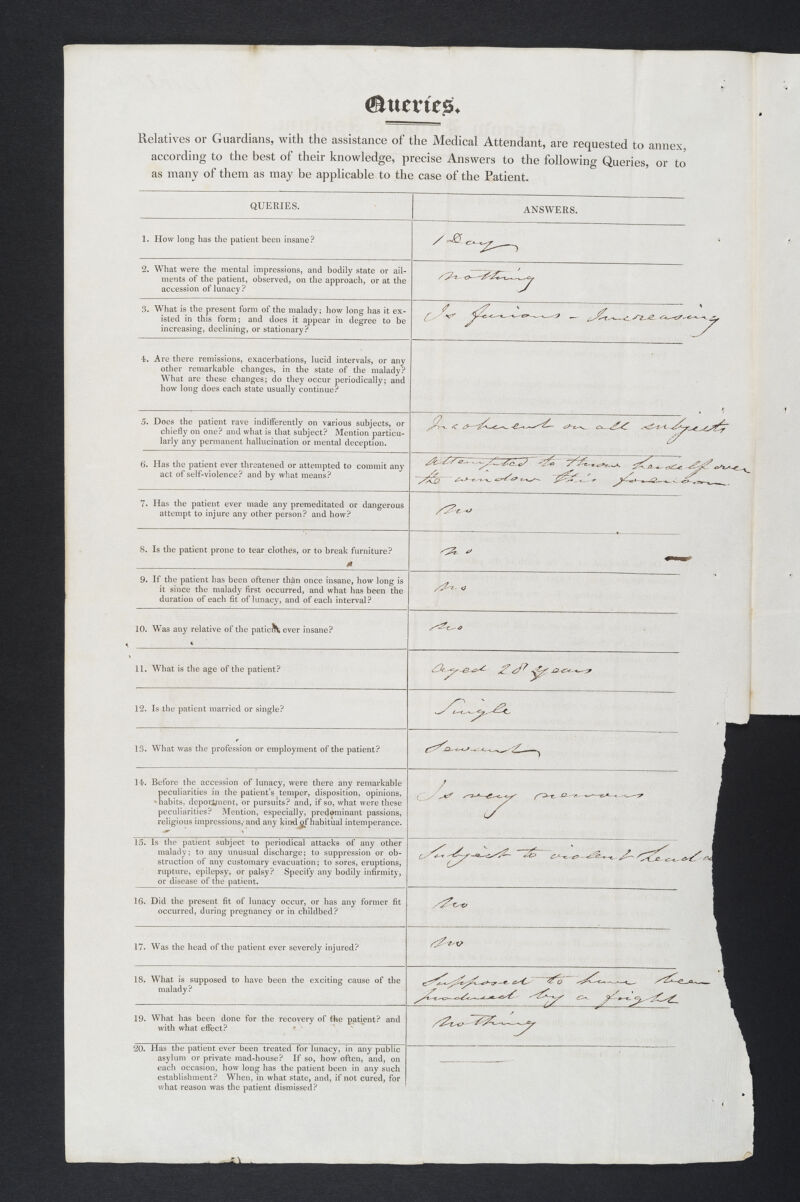 Queries.
Relatives or Guardians, with the assistance of the Medical Attendant, are requested to annex,
according to the best of their knowledge, precise Answers to the following Queries, or to
as many of them as may be applicable to the case of the Patient.
QUERIES.
ANSWERS.
1. How long has the patient been insane?
1 Day
2. What were the mental impressions, and bodily state or ail-
ments of the patient, observed, on the approach, or at the
accession of lunacy?
Nothing
3. What is the present form of the malady; how long has it ex-
isted in this form; and does it appear in degree to be
increasing, declining, or stationary?
Is furious - Increasing
4. Are there remissions, exacerbations, lucid intervals, or any
other remarkable changes, in the state of the malady?
What are these changes; do they occur periodically; and
how long does each state usually continue?
5. Does the patient rave indifferently on various subjects, or
chiefly on one? and what is that subject? Mention particu-
larly any permanent hallucination or mental deception.
Incoherent on all subjects
6. Has the patient ever threatened or attempted to commit any
act of self-violence? and by what means?
Attempted to throw herself over
the window this forenoon
7. Has the patient ever made any premeditated or dangerous
attempt to injure any other person? and how?
No
8. Is the patient prone to tear clothes, or to break furniture?
No
9. If the patient has been oftener than once insane, how long is
it since the malady first occurred, and what has been the
duration of each fit of lunacy, and of each interval?
No
10. Was any relative of the patient ever insane?
No
11. What is the age of the patient?
Aged 28 years
12. Is the patient married or single?
Single
13. What was the profession or employment of the patient?
Servant
14. Before the accession of lunacy, were there any remarkable
peculiarities in the patient's temper, disposition, opinions,
habits, deportment, or pursuits? and, if so, what were these
peculiarities? Mention, especially, predominant passions,
religious impressions, and any kind of habitual intemperance.
Is very nervous
15. Is the patient subject to periodical attacks of any other
malady; to any unusual discharge; to suppression or ob-
struction of any customary evacuation; to sores, eruptions,
rupture, epilepsy, or palsy? Specify any bodily infirmity,
or disease of the patient.
Subject to violent head a
16. Did the present fit of lunacy occur, or has any former fit
occurred, during pregnancy or in childbed?
No
17. Was the head of the patient ever severely injured?
No
18. What is supposed to have been the exciting cause of the
malady?
Supposed to have been
produced by a fright
19. What has been done for the recovery of the patient? and
with what effect?
Nothing
20. Has the patient ever been treated for lunacy, in any public
asylum or private mad-house? If so, how often, and, on
each occasion, how long has the patient been in any such
establishment? When, in what state, and, if not cured, for
what reason was the patient dismissed?